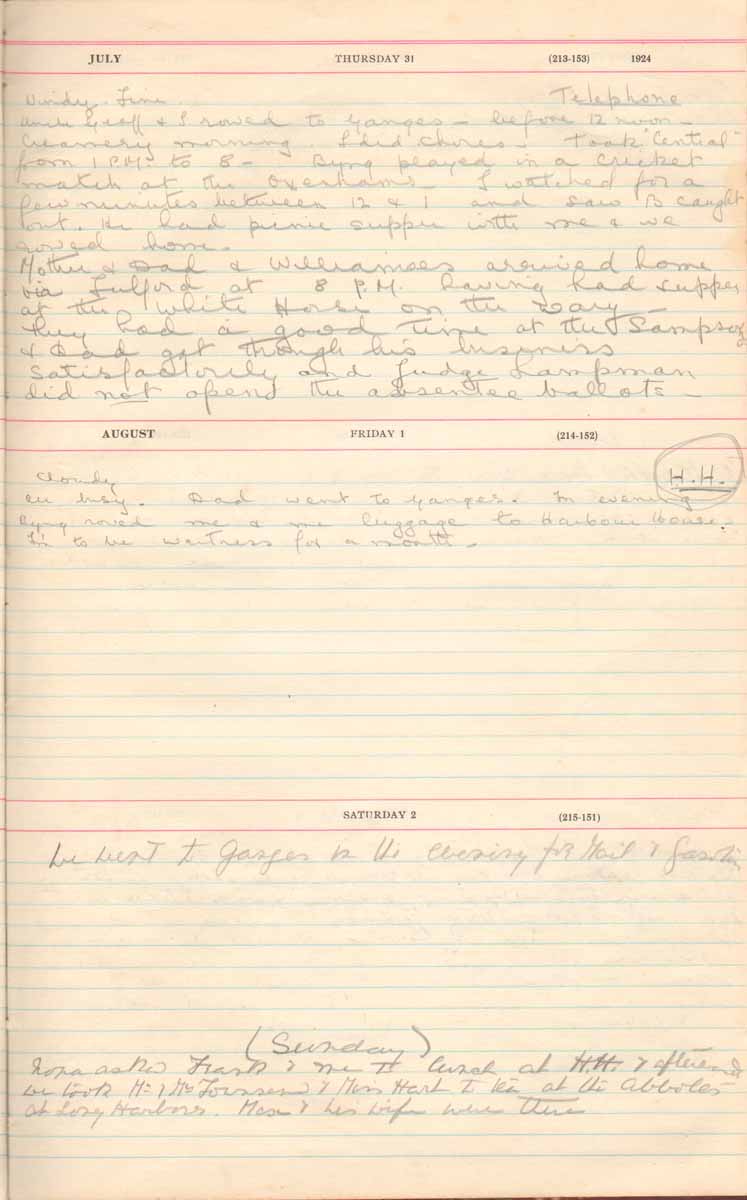 JULY THURSDAY 31 (213-153) 1924
Windy. Fine. Telephone
Uncle Geoff & I rowed to Ganges - before 12 noon -
Creamery morning. I did chores. Took "Central"
from 1 P.M. to 8 - Byng played in a Cricket
match at the Oxenhams. I watched for a
few minutes between 12 & 1 and saw B caught
out. He had picnic supper with me & we
rowed home.
Mother & Dad & Williamses arrived home
via Fulford at 8 P.M. having had supper
at the White House on the way -
They had a good time at the Sampsons
& Dad got through his business
satisfactorily and Judge Lampman
did not opend the absentee ballots -
AUGUST FRIDAY 1 (214-152)
Cloudy H.H.
All busy. Dad went to Ganges. In evening
Byng rowed me & me luggage to Harbour House.
I'm to be waitress for a month -
SATURDAY 2 (215-151)
We went to Ganges in the evening for Mail & Gasoline
(Sunday)
Nona asked Frank & me to lunch at H.H. & afterward
we took Mr & Mrs Townsend & Miss Hart to tea at the Abbotts
at Long Harbour. Max & his wife were there